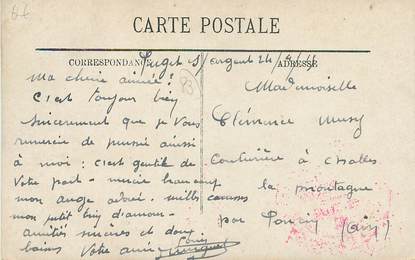 CARTE POSTALE
CORRESPONDANCE
ADRESSE
Ma chère aimée!
C'est toujour bien
sincerement que je vous
remercie de
à moi : c'est gentil de
votre part - mercie beaucoup
mon ange adoré. milles caresses
mon petit brin d'amour -
amitiés sincères et doux
baisers Votre ami Louis
Mademoiselle
Clémence
Couturière à Challes
la montagne
par Poncin (Ain)